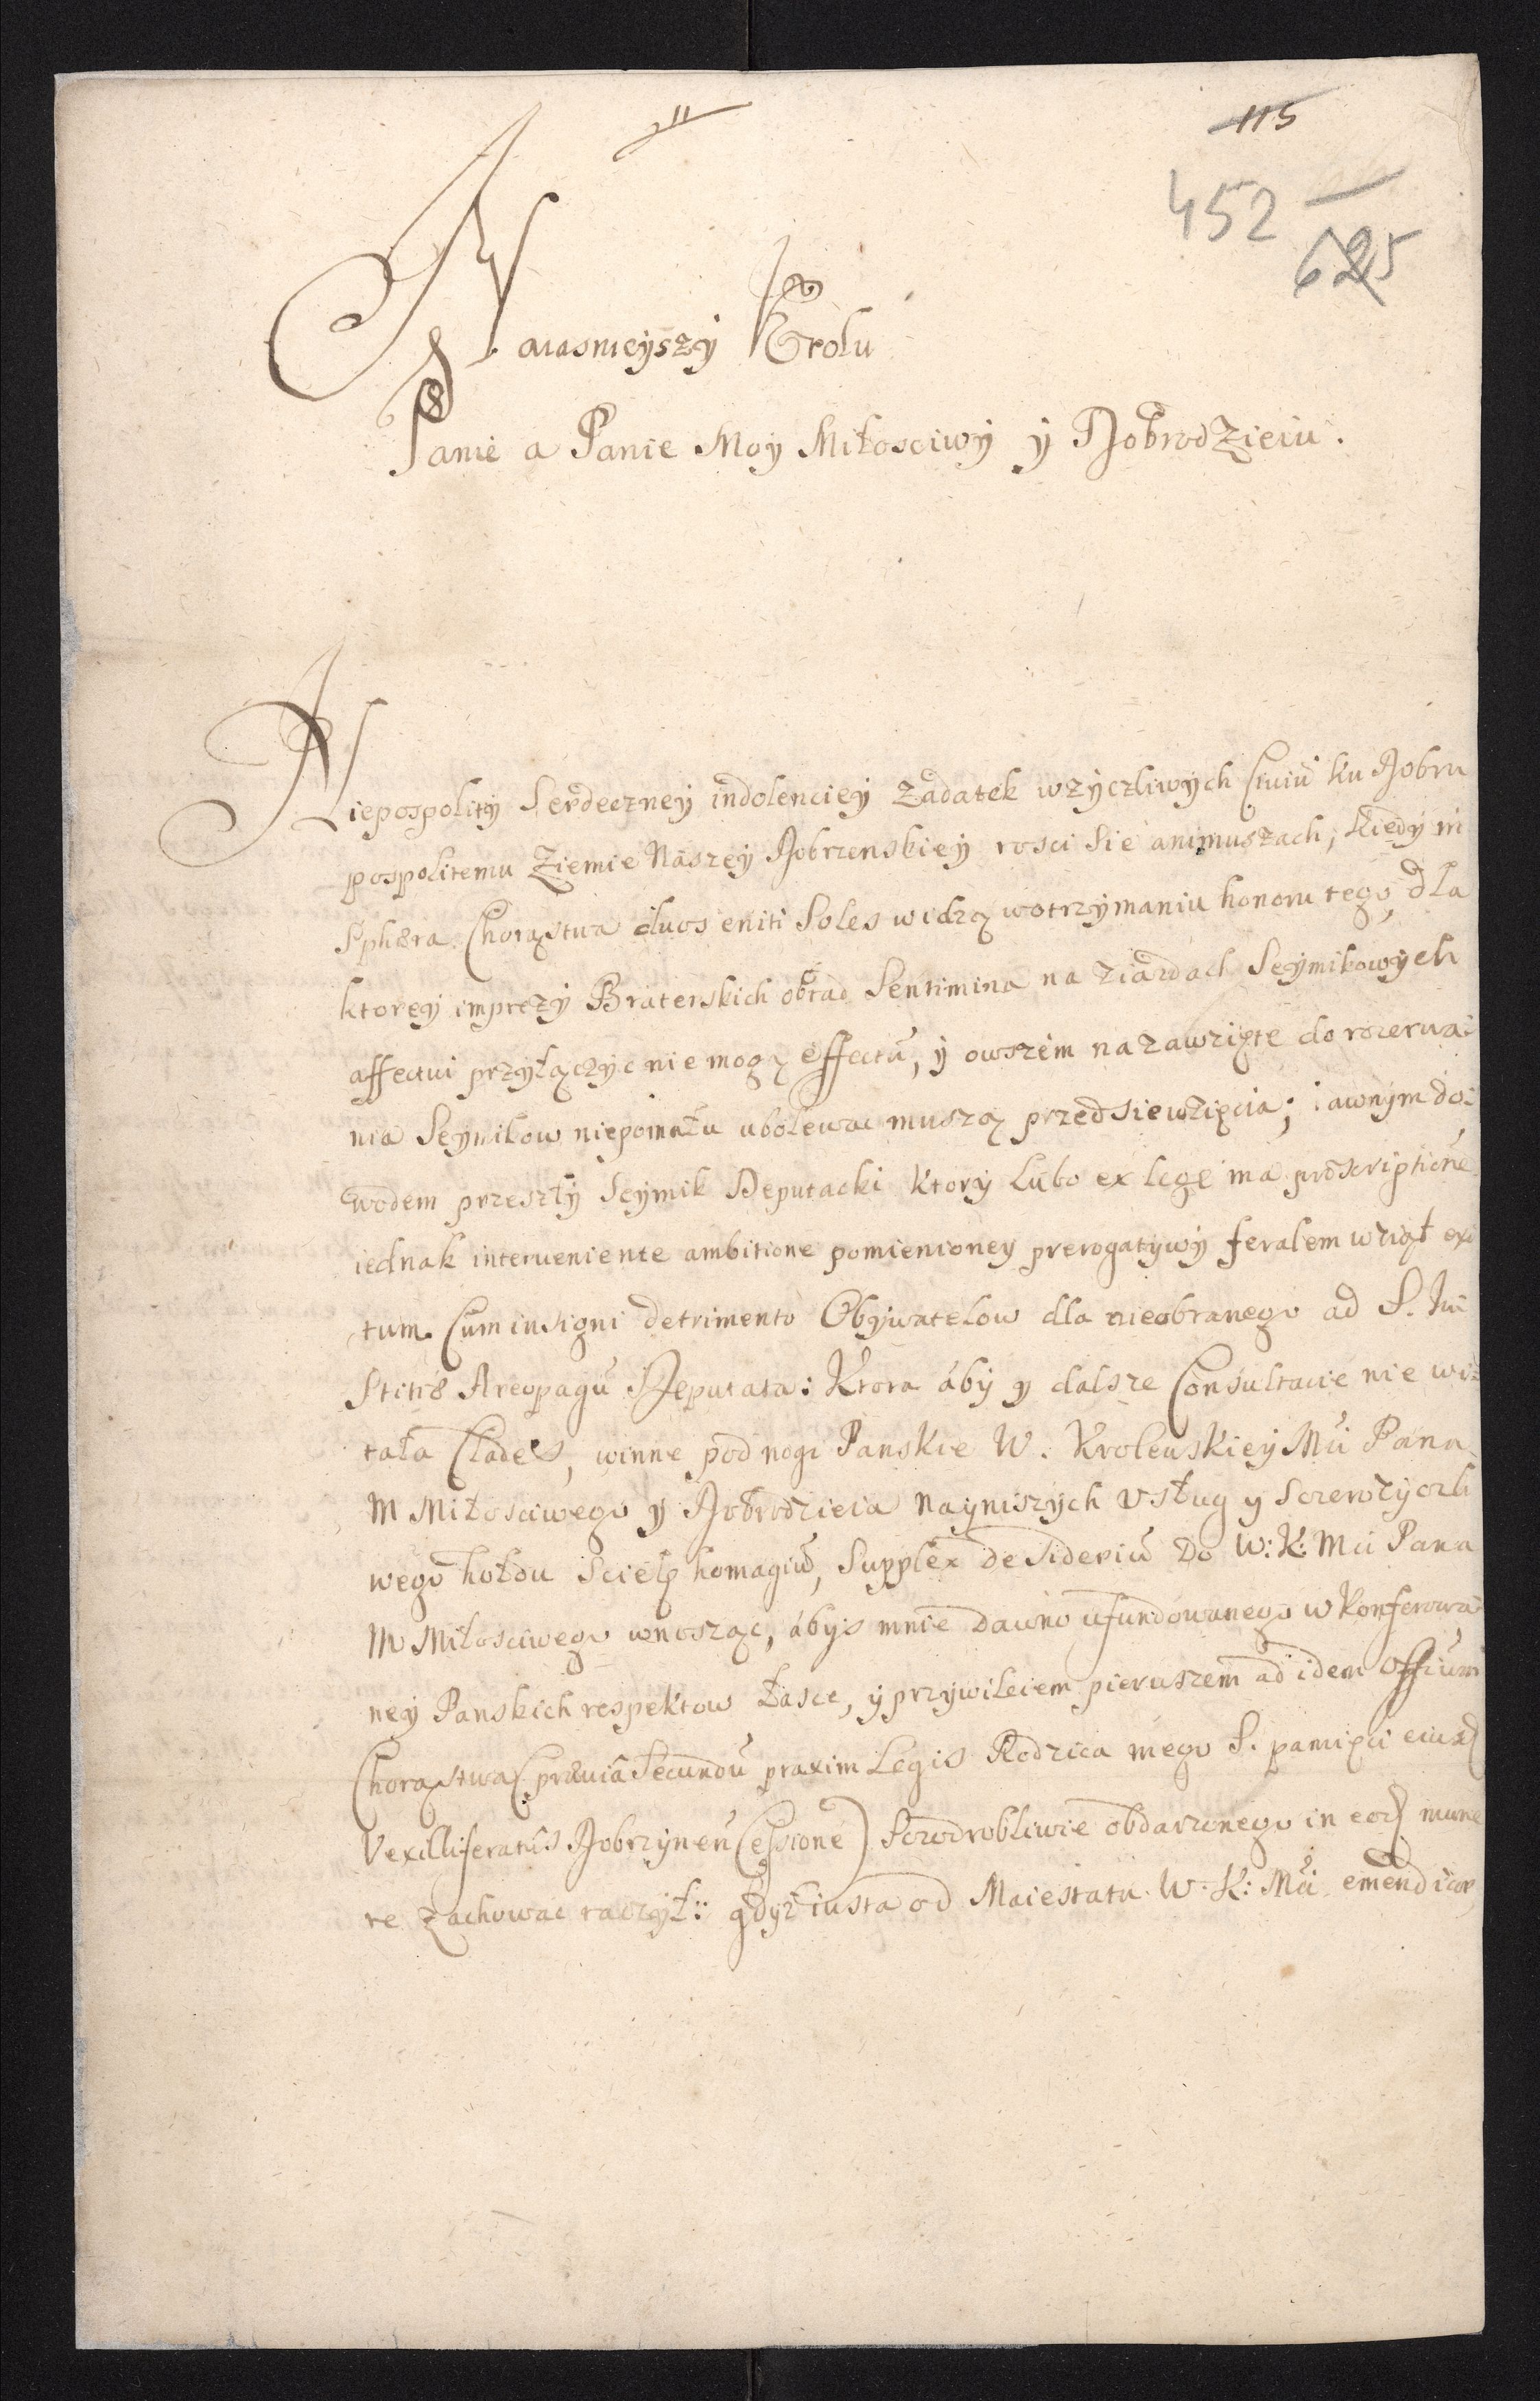 115
452
625
Naiasnieyszy Krolu
Panie a Panie Moy Miłosciwy y Dobrodzieiu.
Niepospolity Serdeczney indolenciey zadatek wzyczliwych Ciuiū ku Dobru
pospolitemu Ziemie Naszey Dobrzenskiey rosci sie animuszach, kiedy in
Sphæra Chorąstwa duos eniti Soles widzą wotrzymaniu honoru tego, dla
ktorey imprezy Braterskich obrad Sentimina na ziazdach Seymikowych
affectui przyłączyc nie mogą effectū, y owszem na zawzięte do rozerwa:
nia Seymikow niepomału ubolewac muszą przedsiewzięcia; iawnym do:
wodem przeszły Seymik Deputacki ktory Lubo ex lege ma proscriptionē
iednak interueniente ambitione pomienioney prerogatywy feralem wziął exi
tum. Cum insigni detrimento Obywatelow dla nieobranego ad S. Iu
stitiæ Areopagū Deputata: Ktora áby y dalsze Consultacie nie wi:
tała Clades, winne pod nogi Panskie W. Krolewskiey Mći Pana
M Miłosciwego y Dobrodzieia nayniszych usług y szczerzyczli
wego hołdu scielę homagiū, Supplex desideriū Do W: K: Mći Pana
M Miłosciwego wnosząc, ábys mnie dawno ufundowanego w konferowa
ney Panskich respektow Łasce, y przywileiem pierwszem ad idem officium
Chorąstwa (præuiâ Secundū praxim Legis Rodzica mego S. pamięci eiusd
Vexilliferatûs Dobrzynen Cessione) szczodrobliwie obdarzonego in eod mune
re zachowac raczył: gdyż iusta od Maiestatu W. K: Mći emendicar